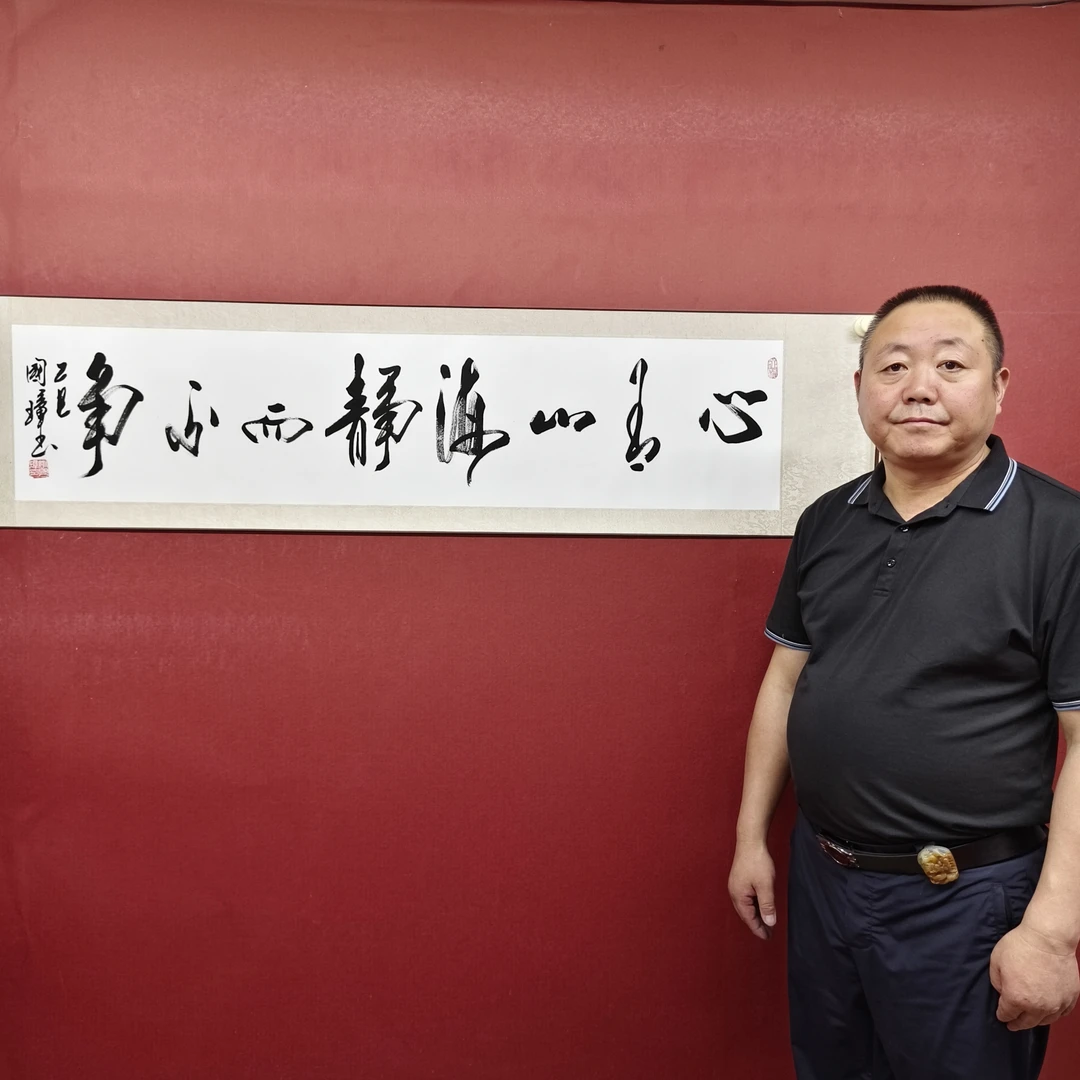 心有山海静而不争
乙巳
國璋书